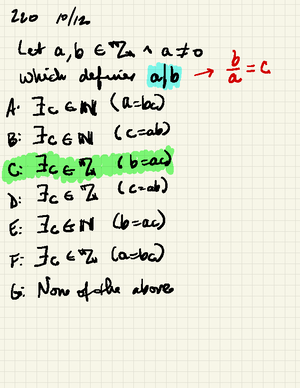 220 10/12
Let a, b ∈ ℤ ∧ a ≠ 0
which defines a|b → b/a = c
A: ∃c ∈ ℕ (a=bc)
B: ∃c ∈ ℕ (c=ab)
C: ∃c ∈ ℤ (b=ac)
D: ∃c ∈ ℤ (c=ab)
E: ∃c ∈ ℕ (b=ac)
F: ∃c ∈ ℤ (a=bc)
G: None of the above